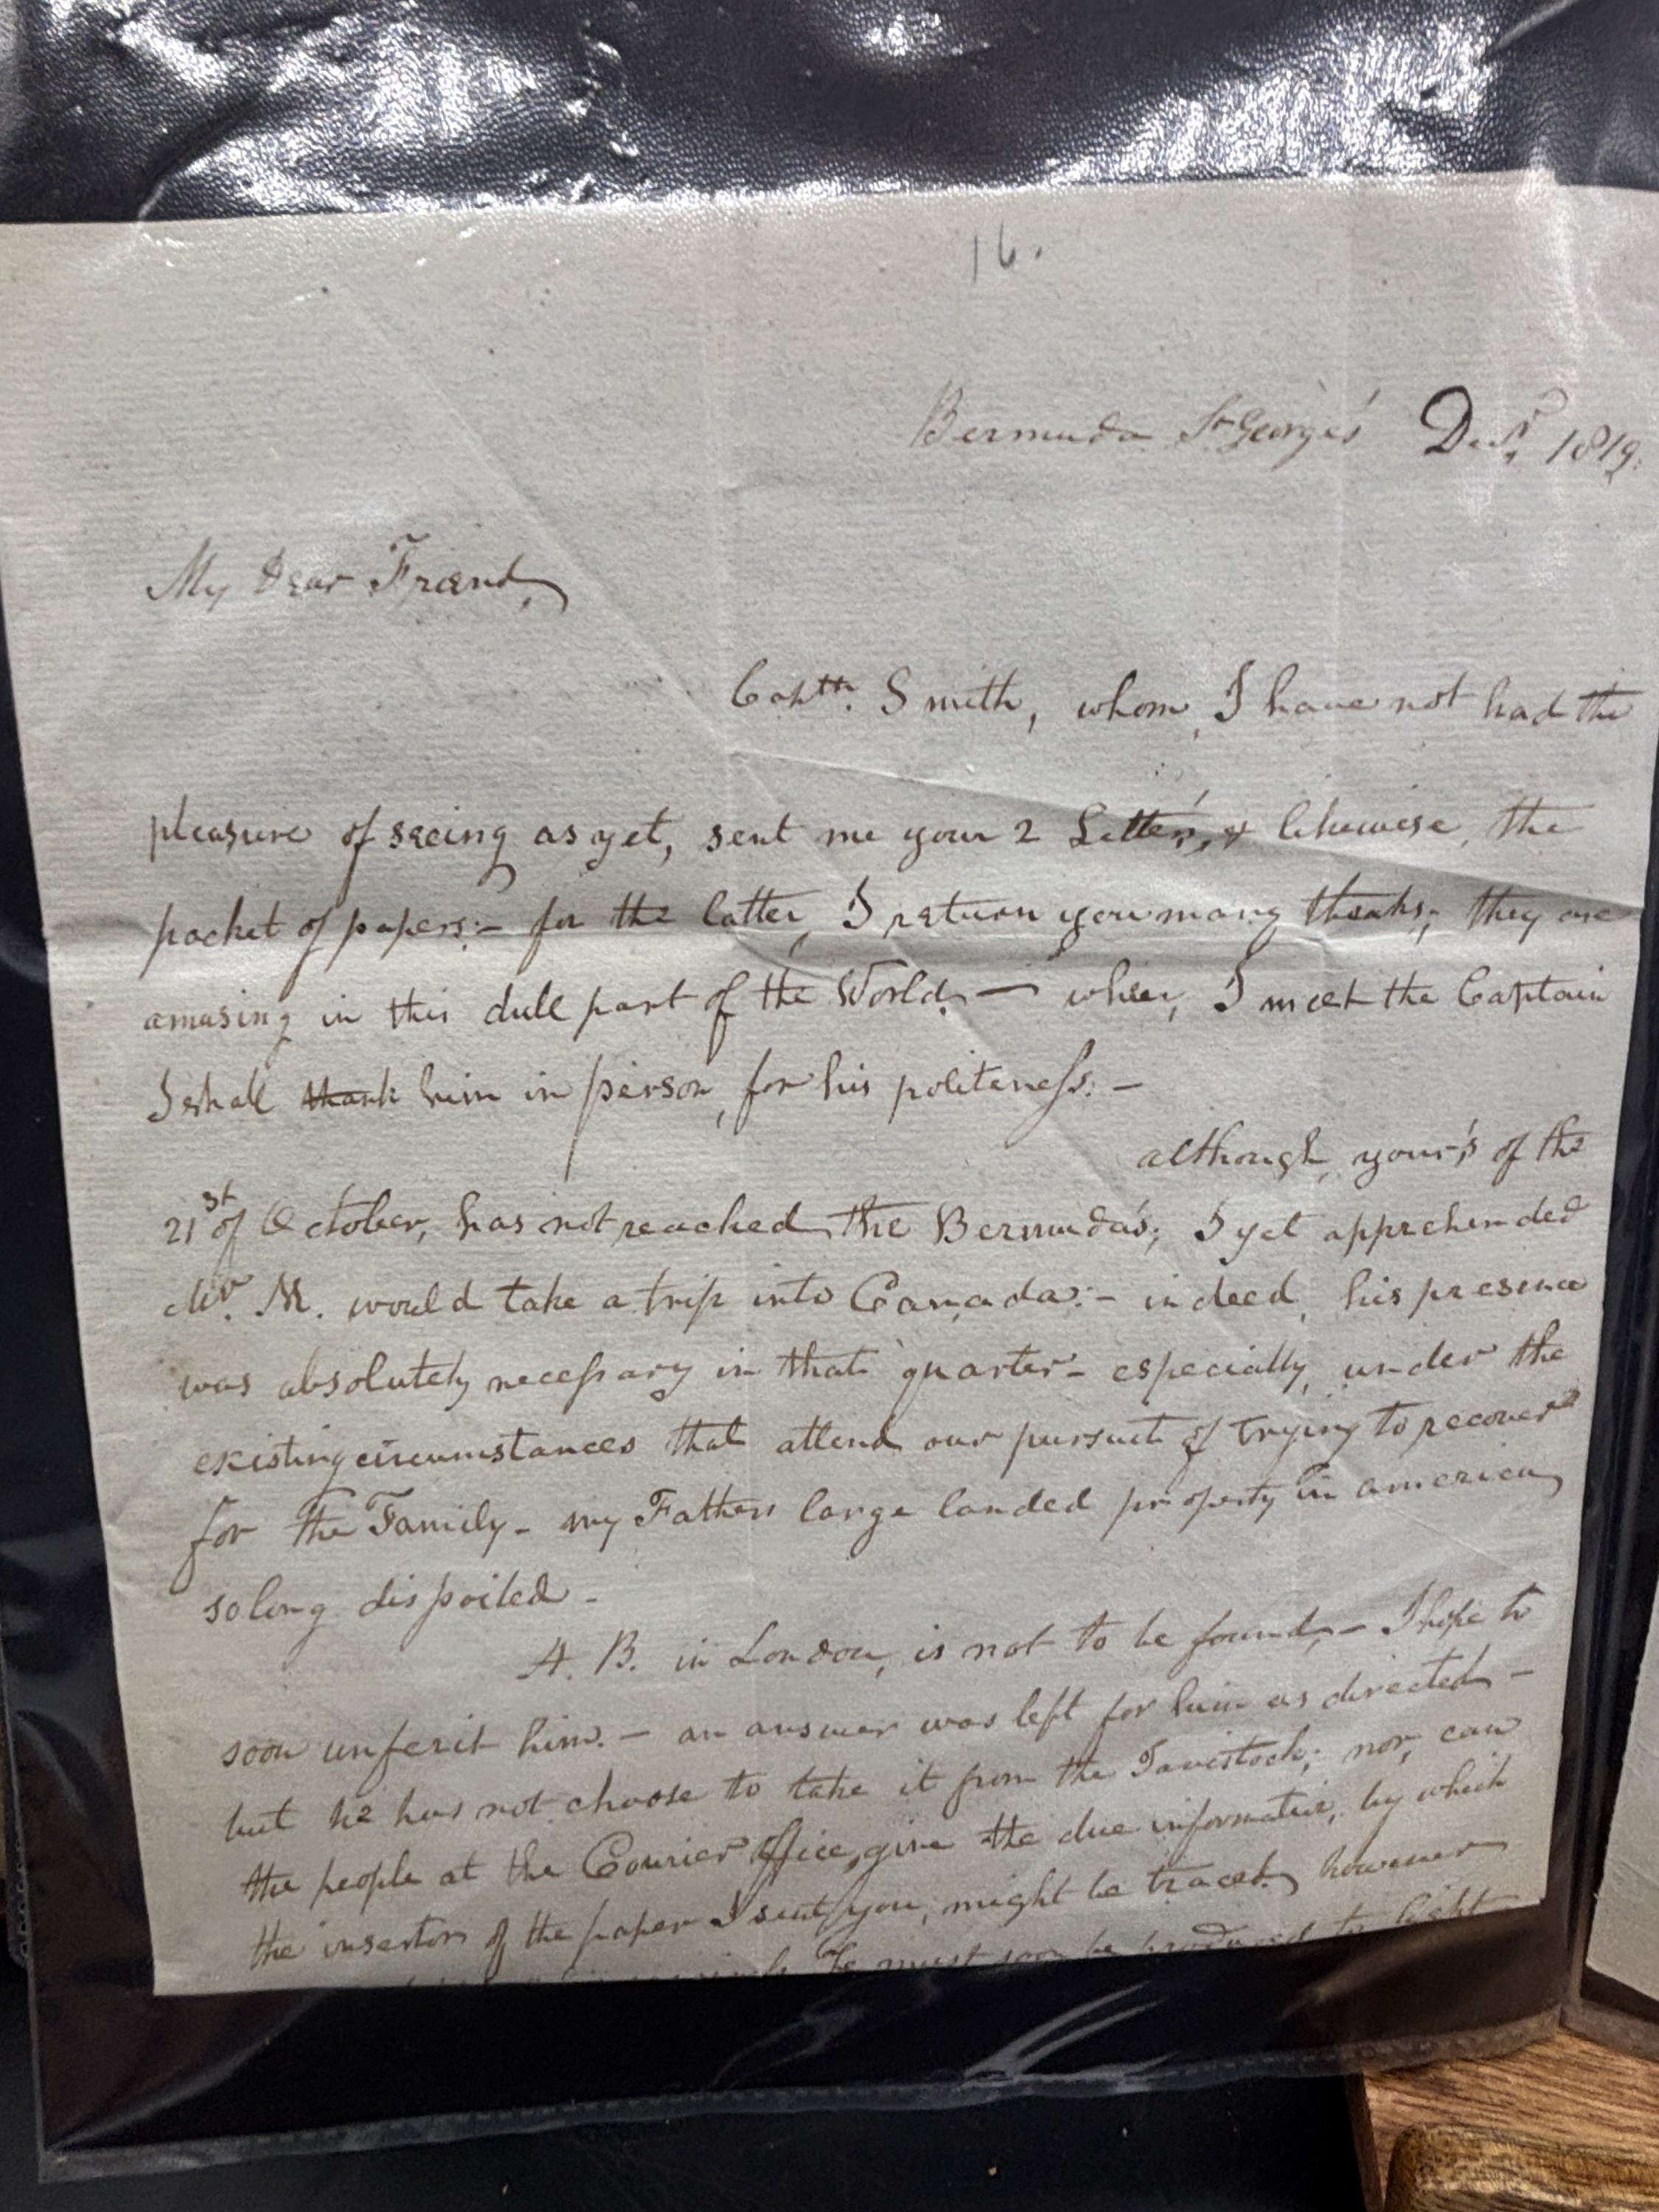 16.
Bermuda St George's Decr. 1819.
My Dear Friend,
Captn. Smith, whom, I have not had the
pleasure of seeing as yet, sent me your 2 Letter's, & likewise, the
packet of papers:- for the latter, I return you many thanks; they are
amusing in this dull part of the World. — when, I meet the Captain
I shall thank him in person, for his politeness. -
although, your's of the
21st of October, has not reached the Bermuda's; I yet apprehended
Mr. M. would take a trip into Canada:- indeed, his presence
was absolutely necessary in that quarter - especially, under the
existing circumstances that attend our pursuit of trying to recover
for the Family - my Fathers large landed property in america,
so long dispoiled -
A. B. in London, is not to be found, - I hope to
soon unferit him. - an answer was left for him as directed -
but he has not choose to take it from the Tavistock; nor, can
the people at the Courier Office, give the due information, by which
the insertor of the paper I sent you, might be traced, however
he must soon be produced to light